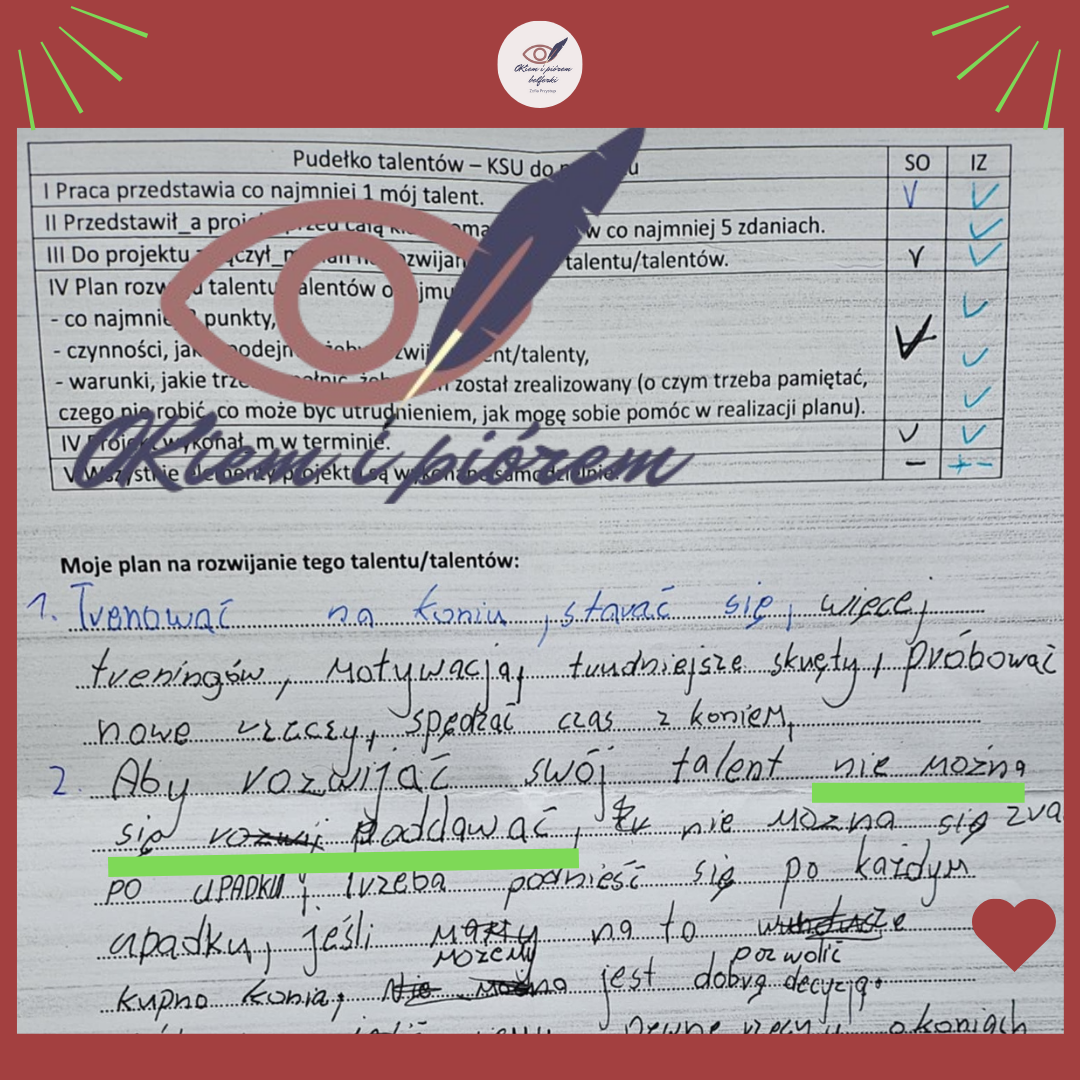 OKiem i piórem
belferki
Zofia Przyzwan
Pudełko talentów – KSU do u
SO IZ
I Praca przedstawia co najmniej 1 mój talent. V ✓
II Przedstawił_a w co najmniej 5 zdaniach. ✓
III Do projektu talentu/talentów. V ✓
IV Plan talentu talentów
- co najmniej punkty, ✓
- czynności, ent/talenty, V ✓
- warunki, jakie został zrealizowany (o czym trzeba pamiętać, ✓
czego nie robić, co może być utrudnieniem, jak mogę sobie pomóc w realizacji planu).
IV Projekt wykonał_m w terminie. ✓ ✓
V Wszystkie elementy projektu są wykonane samodzielnie. – + –
OKiem i piórem
Moje plan na rozwijanie tego talentu/talentów:
1. Trenować na koniu, starać się, więcej
treningów, motywacją, trudniejsze skręty, próbować
nowe rzeczy, spędzać czas z koniem,
2. Aby rozwijać swój talent nie można
się poddawać, nie można się
po upadku, trzeba podnieść się po każdym
upadku, jeśli możemy na to pozwolić
kupno konia, jest dobrą decyzją.
pewne rzeczy o koniach